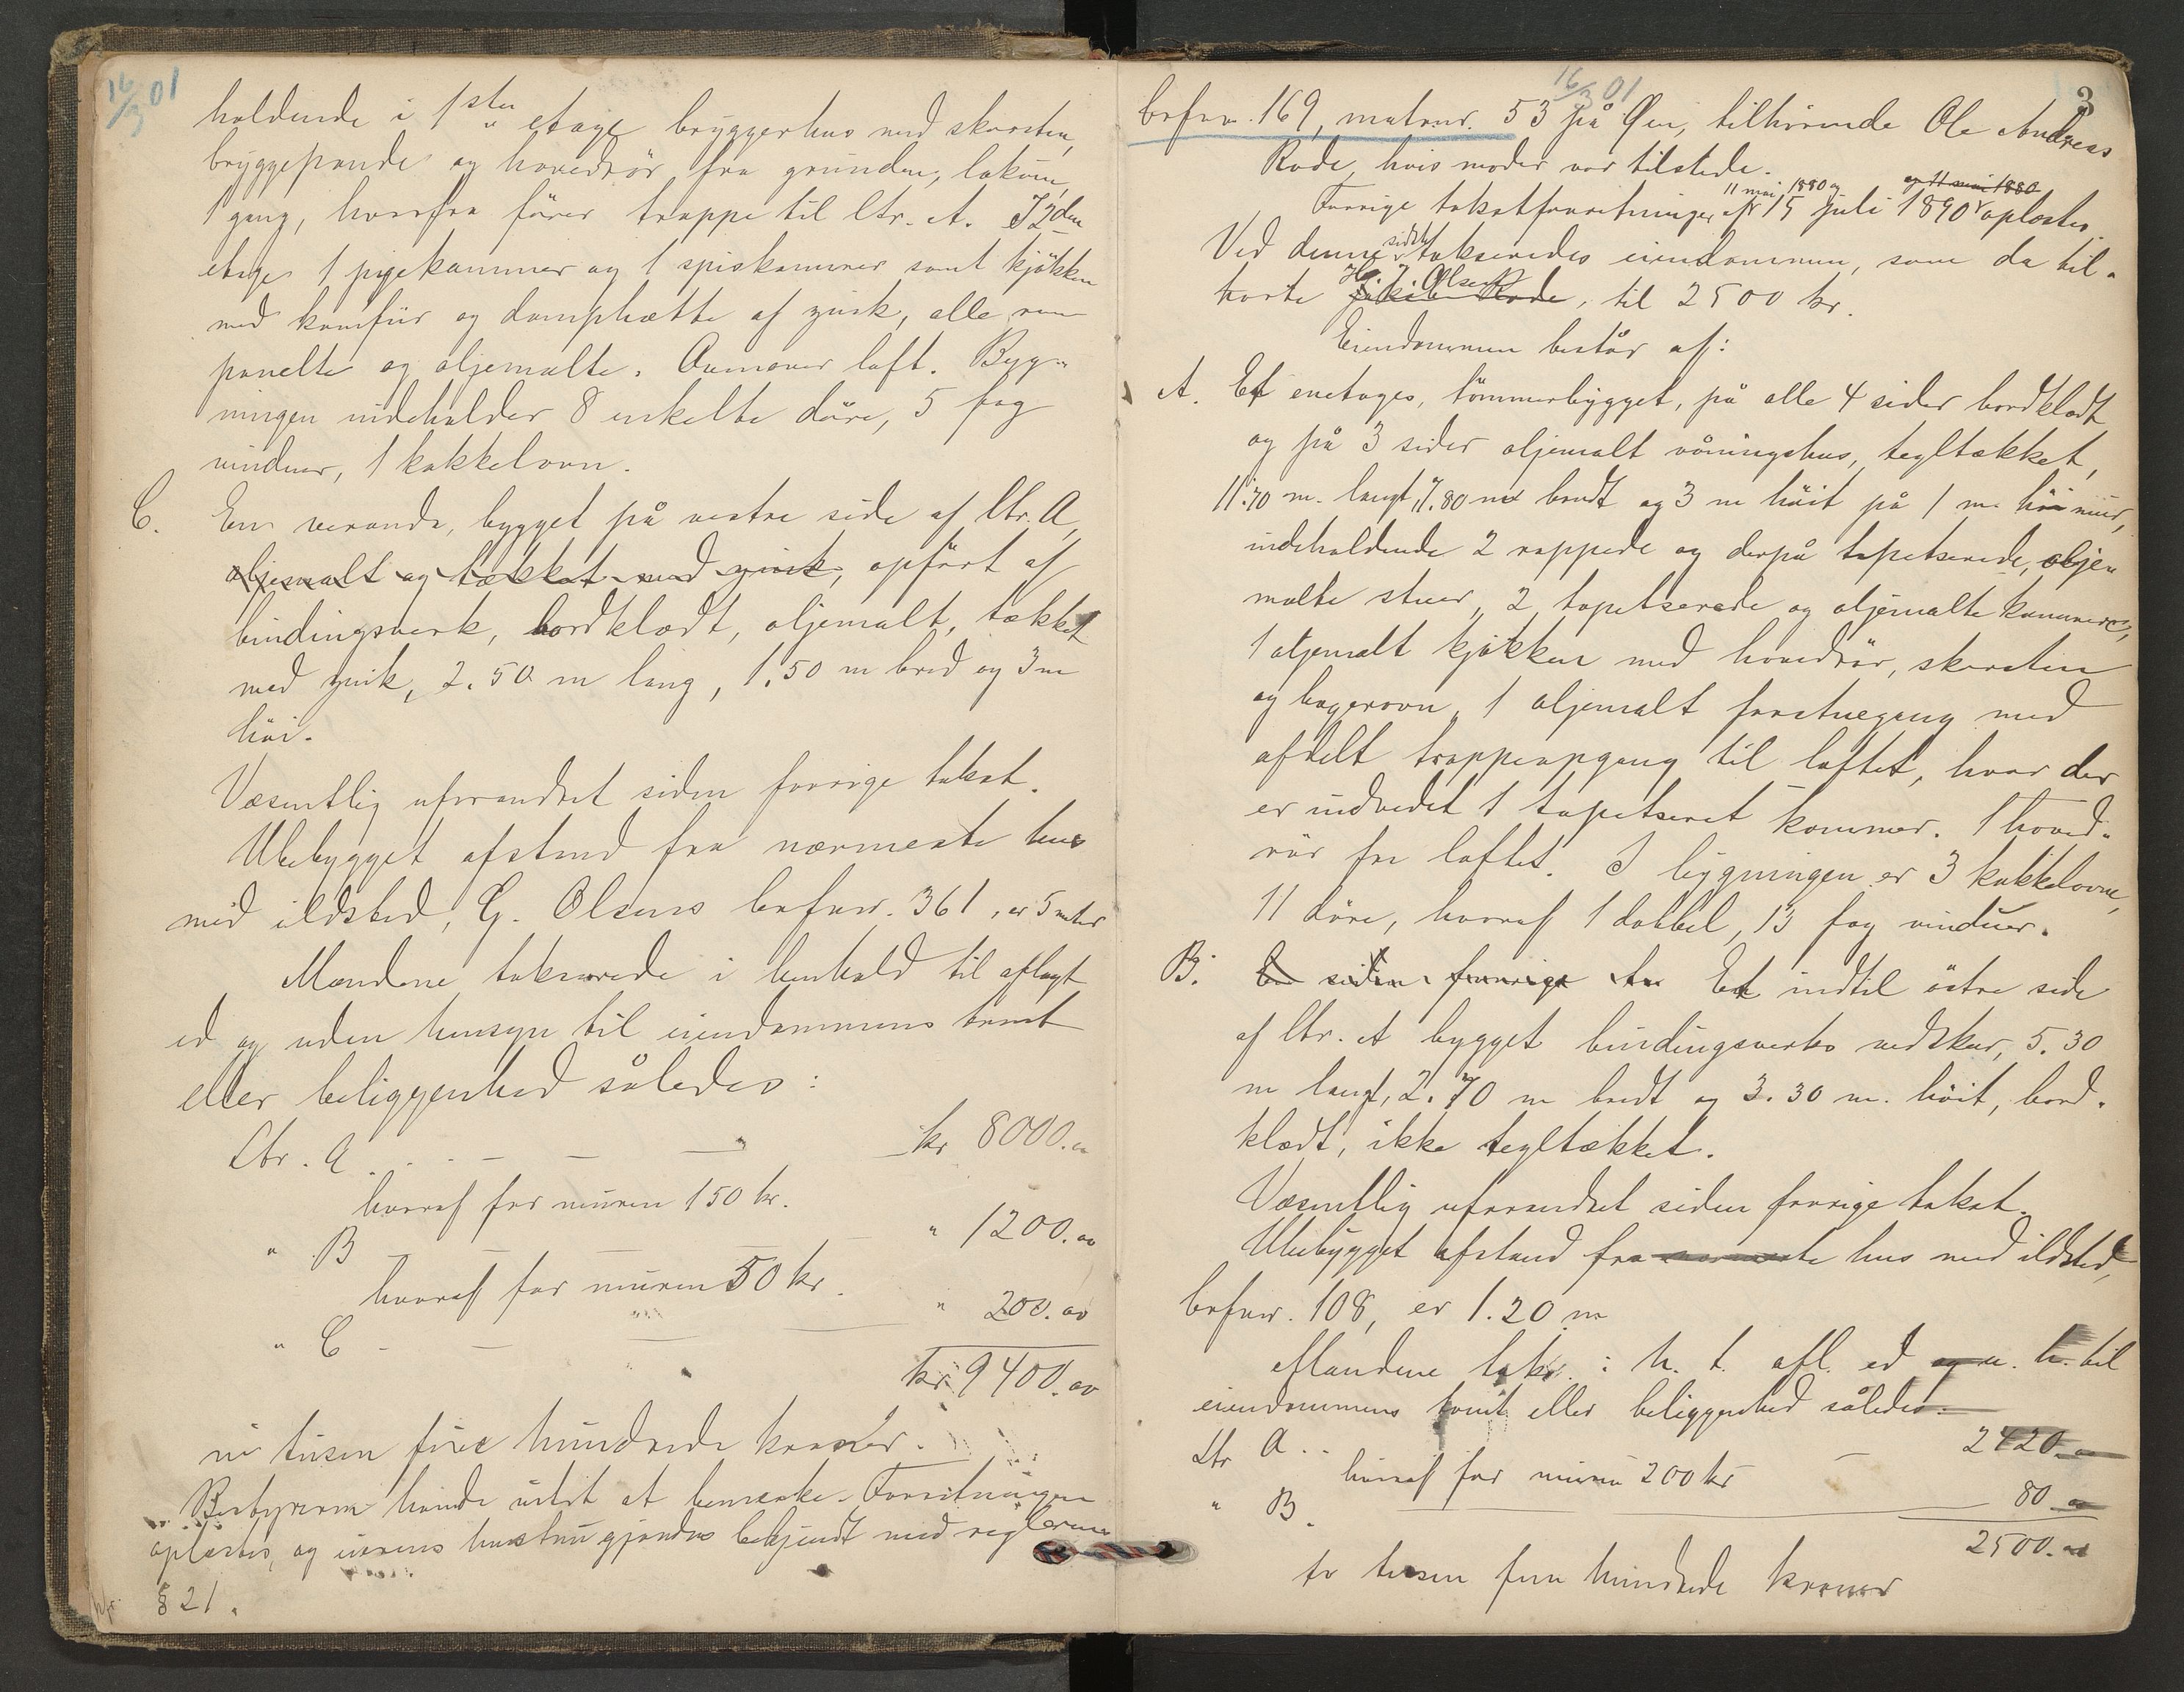 16/3 01
holdende i 1ste etage bryggerhus med skorsten,
bryggepande og hovedrör fra grunden, lokum,
1 gang, hvorfra förer trappe til ltr. A. I 2den
etage 1 pigekammer og 1 spiskammer samt kjökken
med komfür og damphætte af zink, alle rum
panelte og oljemalte. Ovenover loft. Byg-
ningen indeholder 8 enkelte döre, 5 fag
vinduer, 1 kakkelovn.
C. En veranda, bygget på vestre side af ltr. A,
oljemalt og tækket med zink, opfört af
bindingsverk, bordklædt, oljemalt, tækket
med zink, 2.50 m lang, 1.50 m bred og 3 m
höi.
Væsentlig uforandret siden forrige takst.
Ubebygget afstand fra nærmeste hus
med ildsted, G. Olsens brfnr. 361, er 5 meter
Mændene takserede i henhold til aflagt
ed og uden hensyn til eiendommens tomt
eller beliggenhed således:
Ltr. A . . . — — — kr 8000.00
hvoraf for muren 150 kr.
" B — — — — " 1200.00
hvoraf for muren 50 kr.
" C - — — — " 200.00
kr 9400.00
ni tusen fire hundrede kroner.
Bestyreren havde intet at bemerke. Forretningen
oplæstes, og eierens hustru gjordes bekjendt med reglerne
§ 21.
16/3 01
3
brfnr. 169, matrnr. 53 på Øen, tilhörende Ole Andreas
Rode, hvis moder var tilstede.
11 mai 1880 og og 11 mai 1880
Forrige takstforretninger af 15 juli 1890 oplæstes.
Ved denne sidste takseredes eiendommen, som da til-
hörte Rode, til 2500 kr.
Olsen
Eiendommen består af:
A. Et enetages, tömmerbygget, på alle 4 sider bordklædt
og på 3 sider oljemalt våningshus, tegltækket,
11.70 m. langt, 7.80 m bredt og 3 m höit på 1 m. höi mur,
indeholdende 2 rappede og derpå tapetserede, olje-
malte stuer, 2 tapetserede og oljemalte kammere,
1 oljemalt kjökken med hovedrör, skorsten
og bagerovn, 1 oljemalt forstuegang med
afdelt trappeopgang til loftet, hvor der
er indredet 1 tapetseret kammer. 1 hoved-
rör fra loftet. I bygningen er 3 kakkelovne,
11 döre, hvoraf 1 dobbel, 13 fag vinduer.
B. En siden forrige ta Et indtil östre side
af ltr. A bygget bindingsverks vedskur, 5.30
m langt, 2.70 m bredt og 3.30 m. höit, bord-
klædt, ikke tegltækket.
Væsentlig uforandret siden forrige takst.
Ubebygget afstand fra nærmeste hus med ildsted,
brfnr. 108, er 1.20 m
Mændene taks. i h. t. afl. ed og u. h. til
eiendommens tomt eller beliggenhed således.
Ltr A . . — 2420.00
hvoraf for muren 200 kr
" B. 80.00
2500.00
to tusen fem hundrede kroner